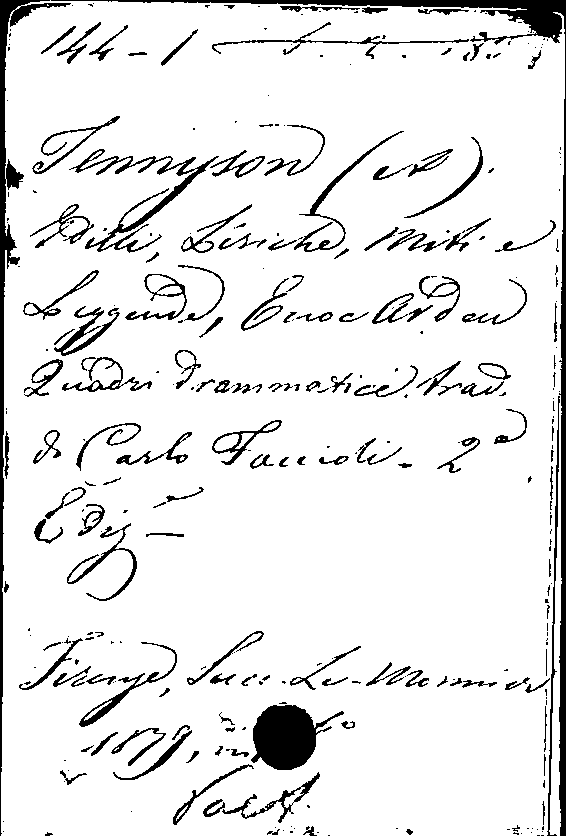 144-1
Tennyson (A).
Idilli, Liriche, Miti e
Leggende, Enoc Arden
Quadri drammatici. trad.
di Carlo Faccioli - 2ª
Edizᵉ —
Firenze, Succ. Le-Monnier
1879, in